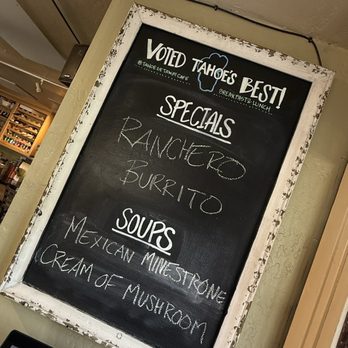 VOTED TAHOE'S BEST!
BREAKFAST & LUNCH
SPECIALS
RANCHERO
BURRITO
SOUPS
MEXICAN MINESTRONE
CREAM OF MUSHROOM